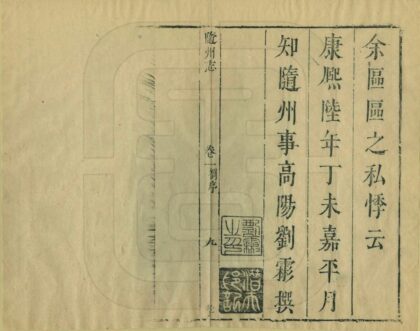 余區區之私悸云
康熙陸年丁未嘉平月
知隨州事高陽劉霦撰
隨州志
卷一劉序
九